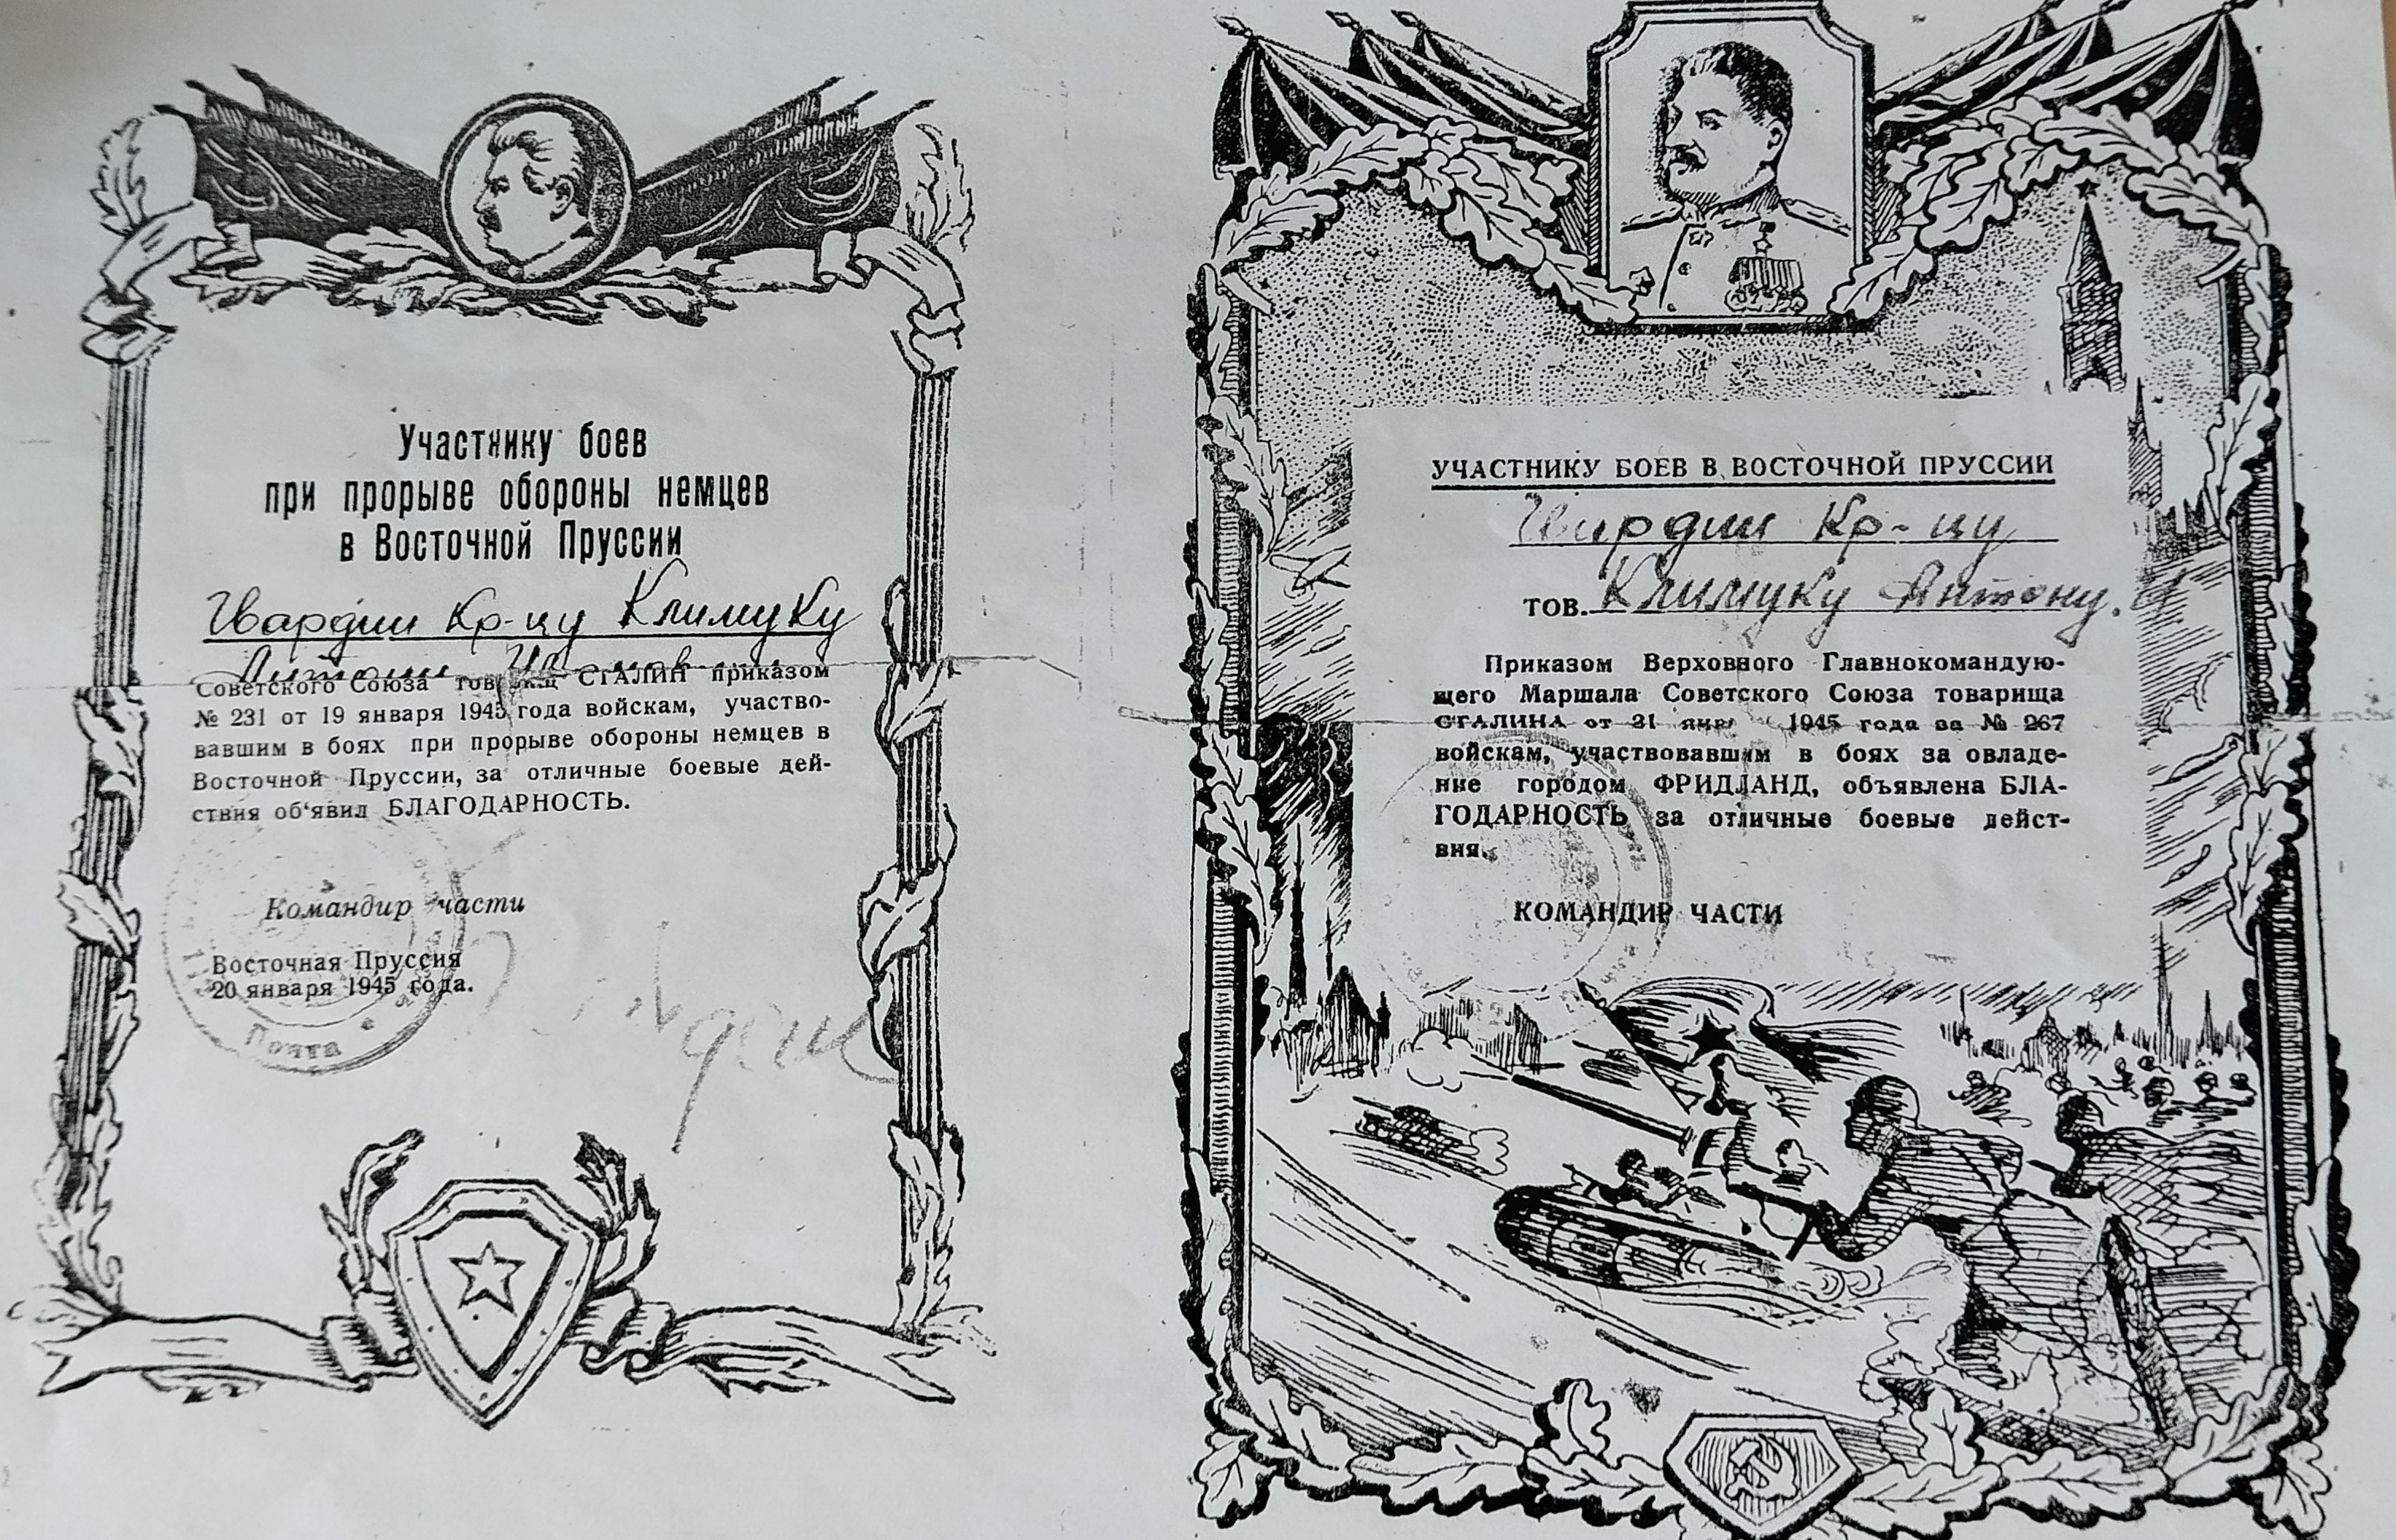 Участнику боев
при прорыве обороны немцев
в Восточной Пруссии
Гвардии Кр-цу Климуку
Советского Союза СТАЛИН приказом
№ 231 от 19 января 1945 года войскам, участво-
вавшим в боях при прорыве обороны немцев в
Восточной Пруссии, за отличные боевые дей-
ствия об'явил БЛАГОДАРНОСТЬ.
Командир части
Восточная Пруссия
20 января 1945 года.
Почта
УЧАСТНИКУ БОЕВ В ВОСТОЧНОЙ ПРУССИИ
Гвардии Кр-цу
ТОВ. Климуку Антону.
Приказом Верховного Главнокомандую-
щего Маршала Советского Союза товарища
СТАЛИНА от 31 1945 года за № 267
войскам, участвовавшим в боях за овладе-
ние городом ФРИДЛАНД, объявлена БЛА-
ГОДАРНОСТЬ за отличные боевые дейст-
вия.
КОМАНДИР ЧАСТИ